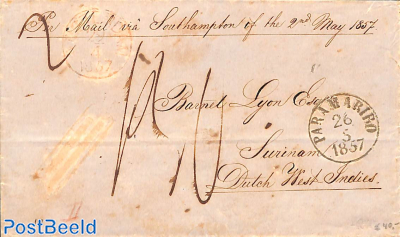 Per Mail viâ Southampton of the 2nd May 1857.
2
Barnet Lyon Esq
PARAMARIBO
26
5
1857
Surinam
Dutch West Indies.
PostBeeld
€40,-